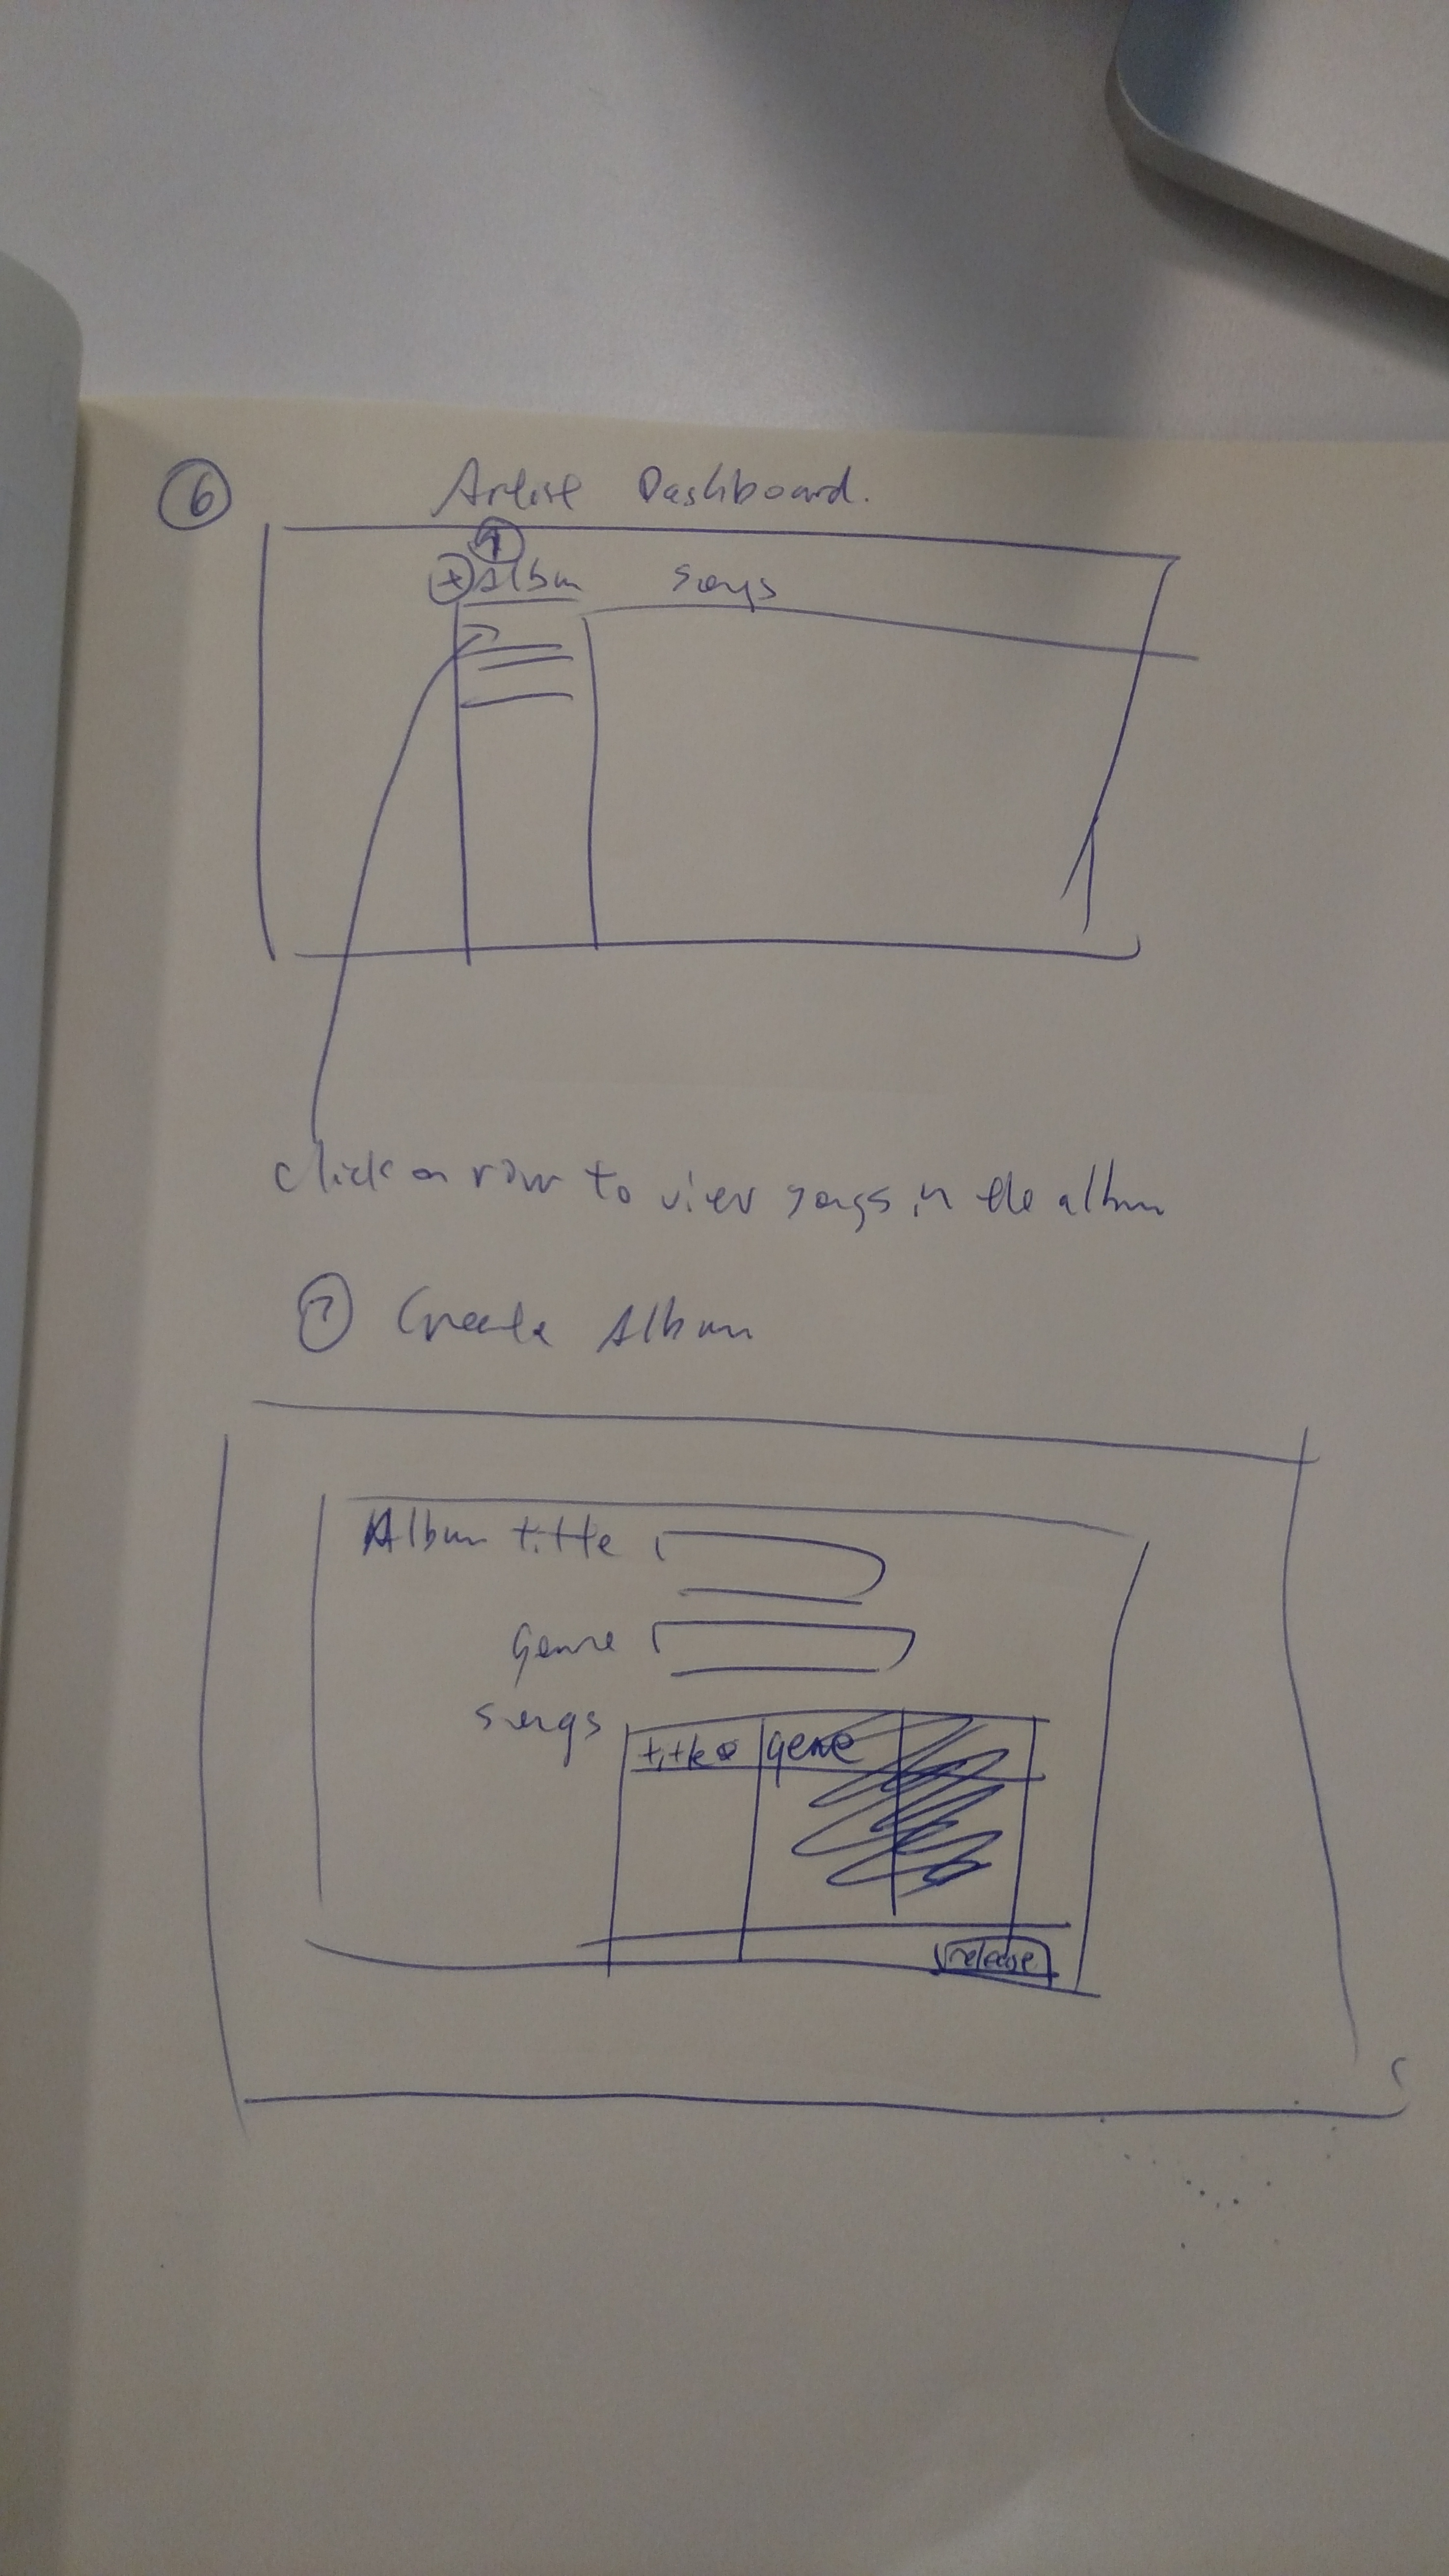 6 Artist Dashboard.
7
+ Album songs
click on row to view songs in the album
7 Create Album
Album title
Genre
songs
title genre
release